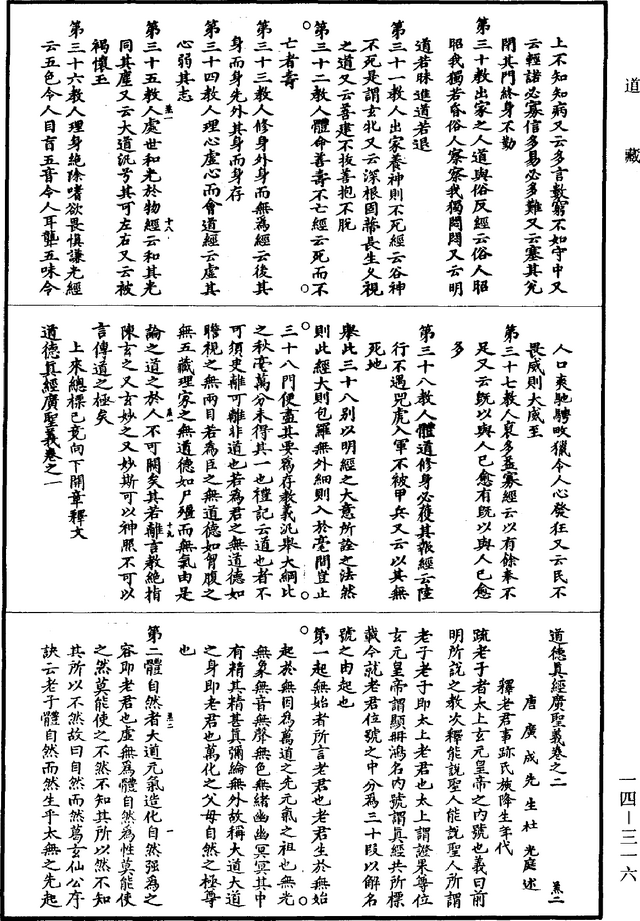 道藏
上不知知病又云多言數窮不如守中又
云輕諾必寡信多易必多難又云塞其兌
閉其門終身不勤
第三十教出家之人道與俗反經云俗人昭
昭我獨若昏俗人察察我獨悶悶又云明
道若昧進道若退
第三十一教人出家養神則不死經云谷神
不死是謂玄牝又云深根固蔕長生久視
之道又云善建不拔善抱不脫
第三十二教人體命善壽不亡經云死而不
亡者壽
第三十三教人修身外身而無為經云後其
身而身先外其身而身存
第三十四教人理心虛心而會道經云虛其
心弱其志
第三十五教人處世和光於物經云和其光
同其塵又云大道汎兮其可左右又云被
褐懷玉
第三十六教人理身絶除嗜欲畏慎謙光經
云五色令人目盲五音令人耳聾五味令
人口爽馳騁畋獵令人心發狂又云民不
畏威則大威至
第三十七教人裒多益寡經云以有餘奉不
足又云既以與人己愈有既以與人己愈
多
第三十八教人體道修身必獲其報經云陸
行不遇兕虎入軍不被甲兵又云以其無
死地
舉此三十八別以明經之大意所詮之法然
則此經大則包羅無外細則入於毫間豈止
三十八門便盡其要為存教義汎舉大綱比
之秋毫萬分未得其一也禮記云道也者不
可須臾離可離非道也若為君之無道德如
瞻視之無兩目若為臣之無道德如胷腹之
無五藏理家之無道德如尸殭而無氣由是
論之道之於人不可闕矣其若離言教絶指
陳玄之又玄妙之又妙斯可以神照不可以
言傳道之極矣
上來總標已竟向下開章釋文
道德真經廣聖義卷之一
道德真經廣聖義卷之二
唐廣成先生杜光庭述
釋老君事跡氏族降生年代
疏老子者太上玄元皇帝之內號也義曰前
明所說之教次釋能說聖人能說聖人所謂
老子老子即太上老君也太上謂證果尊位
玄元皇帝謂顯冊鴻名內號謂真經共所標
載今就老君位號之中分為三十段以解名
號之由起也
第一起無始者所言老君也老君生於無始
起於無因為萬道之先元氣之祖也無光
無象無音無聲無色無緒幽幽冥冥其中
有精其精甚真彌綸無外故稱大道大道
之身即老君也萬化之父母自然之極尊
也
第二體自然者大道元氣造化自然强為之
容即老君也虛無為體自然為性莫能使
之然莫能使之不然不知其所以然不知
其所以不然故曰自然而然葛玄仙公序
訣云老子體自然而然生乎太無之先起
一四—三一六